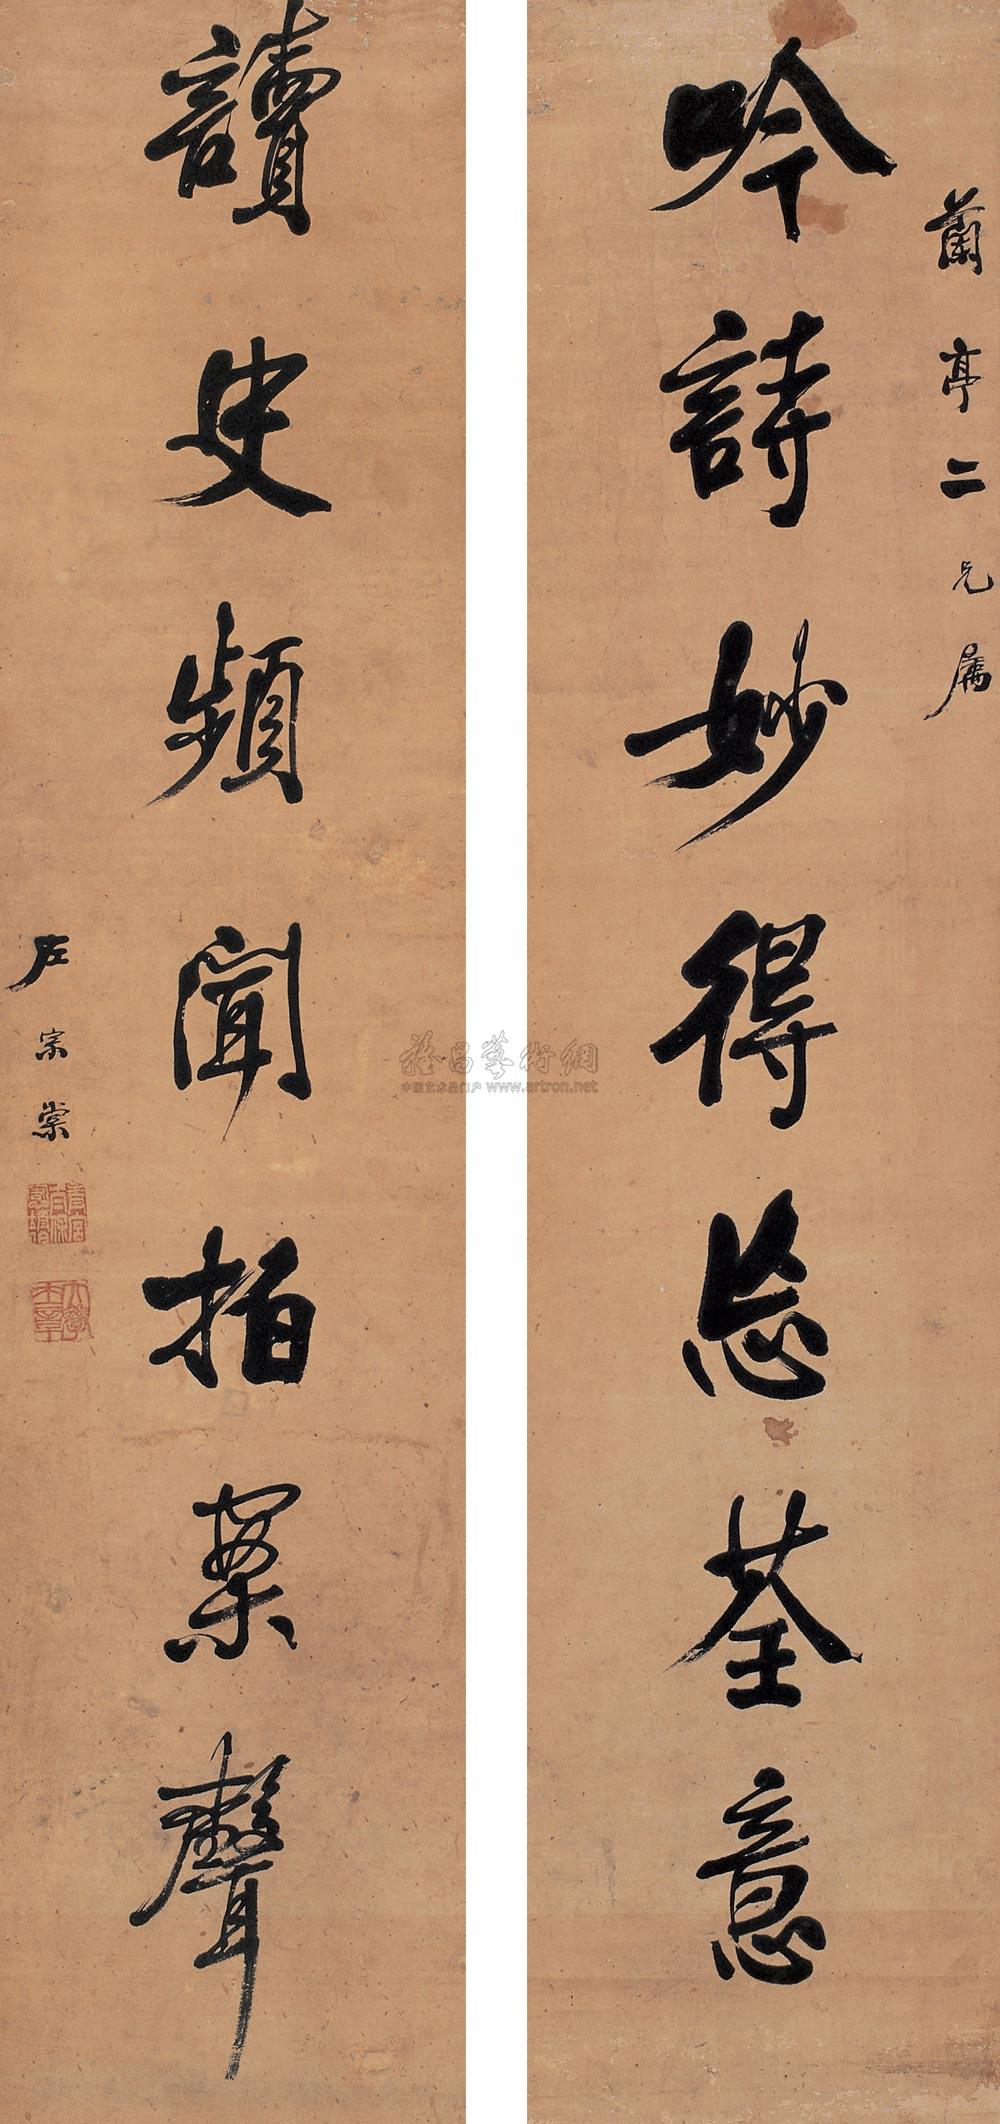 蘭亭二兄属
吟詩妙得忘荃意
讀史頻聞拍案聲
左宗棠
雅昌藝術網
中国艺术品门户 www.artron.net